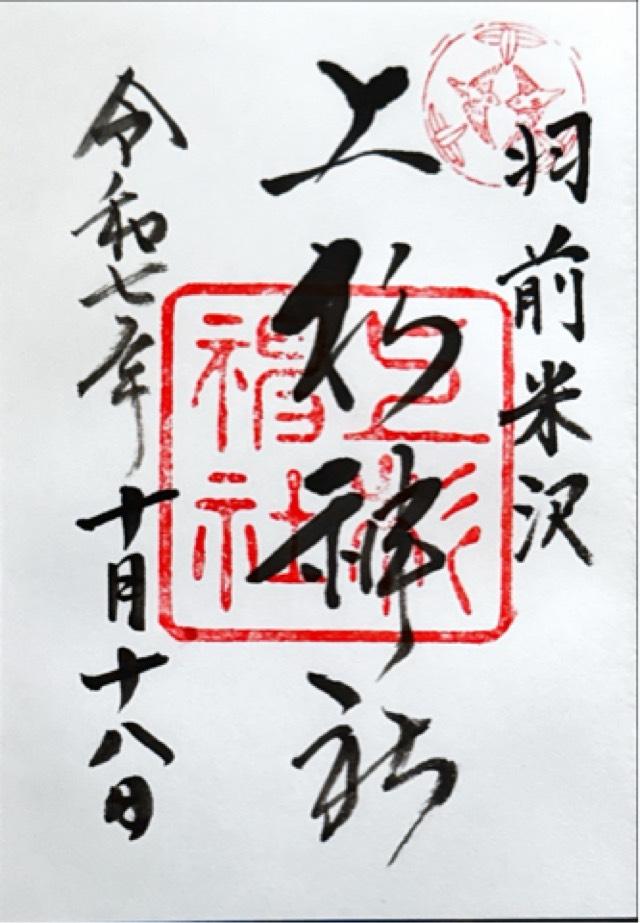 羽前米沢
上杉神社
上杉
神社
令和七年十月十八日